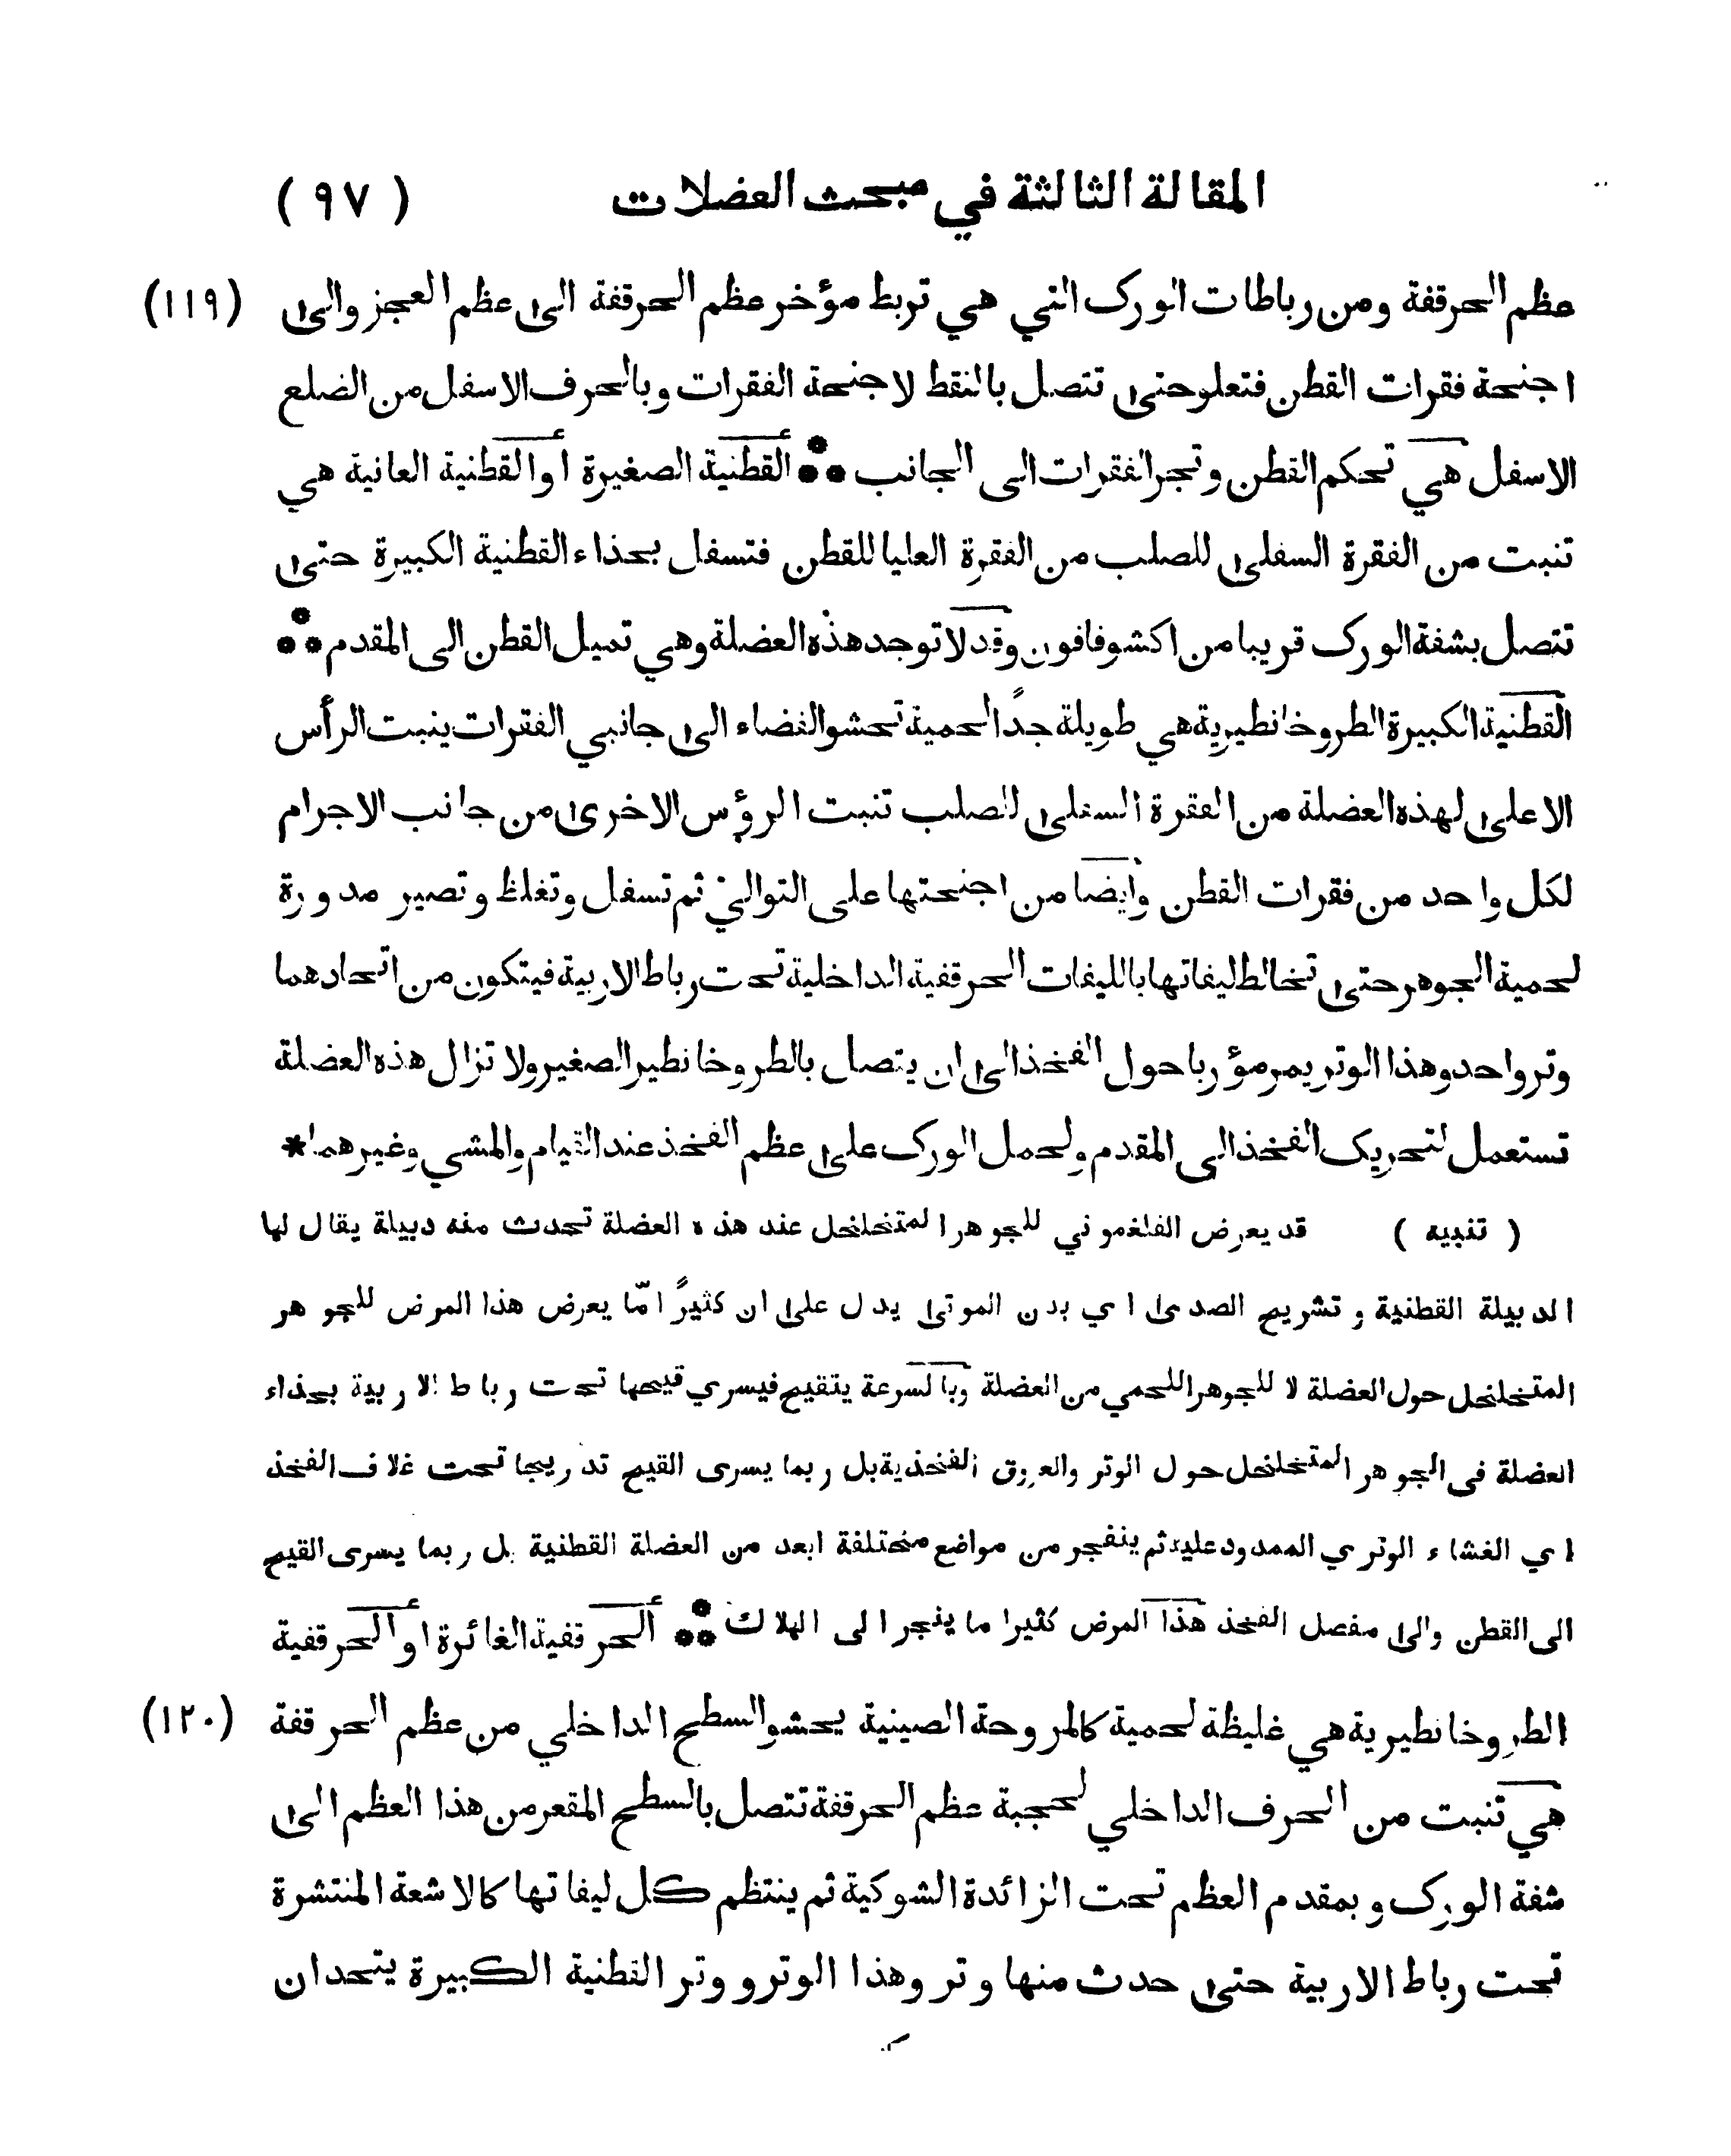 المقالة الثالثة في مبحث العضلات ( ٩٧ )
عظم الحرقفة ومن رباطات الورك التي هي تربط مؤخر عظم الحرقفة الى عظم العجز والى (١١٩)
اجنحة فقرات القطن فتعلو حتى تتصل بالنقط لاجنحة الفقرات وبالحرف الاسفل من الضلع
الاسفل هي تحكم القطن وتجر الفقرات الى الجانب ⁂ القطنية الصغيرة او القطنية العانية هي
تنبت من الفقرة السفلى للصلب من الفقرة العليا للقطن فتسفل بحذاء القطنية الكبيرة حتى
تتصل بشفة الورك قريبا من اكشوفافون وقد لا توجد هذه العضلة وهي تميل القطن الى المقدم ⁂
القطنية الكبيرة الطروخانطيرية هي طويلة جدًا لحمية تحشو الفضاء الى جانبي الفقرات ينبت الرأس
الاعلى لهذه العضلة من الفقرة السفلى للصلب تنبت الرؤس الاخرى من جانب الاجرام
لكل واحد من فقرات القطن وايضا من اجنحتها على التوالي ثم تسفل وتغلظ وتصير مدورة
لحمية الجوهر حتى تخالط ليفاتها بالليفات الحرقفية الداخلية تحت رباط الاربية فيتكون من اتحادهما
وتر واحد وهذا الوتر يمر مؤربا حول الفخذ الى ان يتصل بالطروخانطير الصغير ولا تزال هذه العضلة
تستعمل لتحريك الفخذ الى المقدم ولحمل الورك على عظم الفخذ عند القيام والمشي وغيرهما *
( تنبيه ) قد يعرض الفلغموني للجوهر المتخلخل عند هذه العضلة تحدث منه دبيلة يقال لها
الدبيلة القطنية وتشريح الصدى اي بدن الموتى يدل على ان كثيرًا مّا يعرض هذا المرض للجوهر
المتخلخل حول العضلة لا للجوهر اللحمي من العضلة وبالسرعة يتقيح فيسري قيحها تحت رباط الاربية بحذاء
العضلة فى الجوهر المتخلخل حول الوتر والعروق الفخذية بل ربما يسرى القيح تدريجا تحت غلاف الفخذ
اي الغشاء الوتري الممدود عليه ثم ينفجر من مواضع مختلفة ابعد من العضلة القطنية بل ربما يسرى القيح
الى القطن والى مفصل الفخذ هذا المرض كثيرا ما ينجر الى الهلاك ⁂ الحرقفية الغائرة او الحرقفية
الطروخانطيرية هي غليظة لحمية كالمروحة الصينية يحشو السطح الداخلي من عظم الحرقفة (١٢٠)
هي تنبت من الحرف الداخلي لحجبة عظم الحرقفة تتصل بالسطح المقعر من هذا العظم الى
شفة الورك وبمقدم العظم تحت الزائدة الشوكية ثم ينتظم كل ليفاتها كالاشعة المنتشرة
تحت رباط الاربية حتى حدث منها وتر وهذا الوتر ووتر القطنية الكبيرة يتحدان